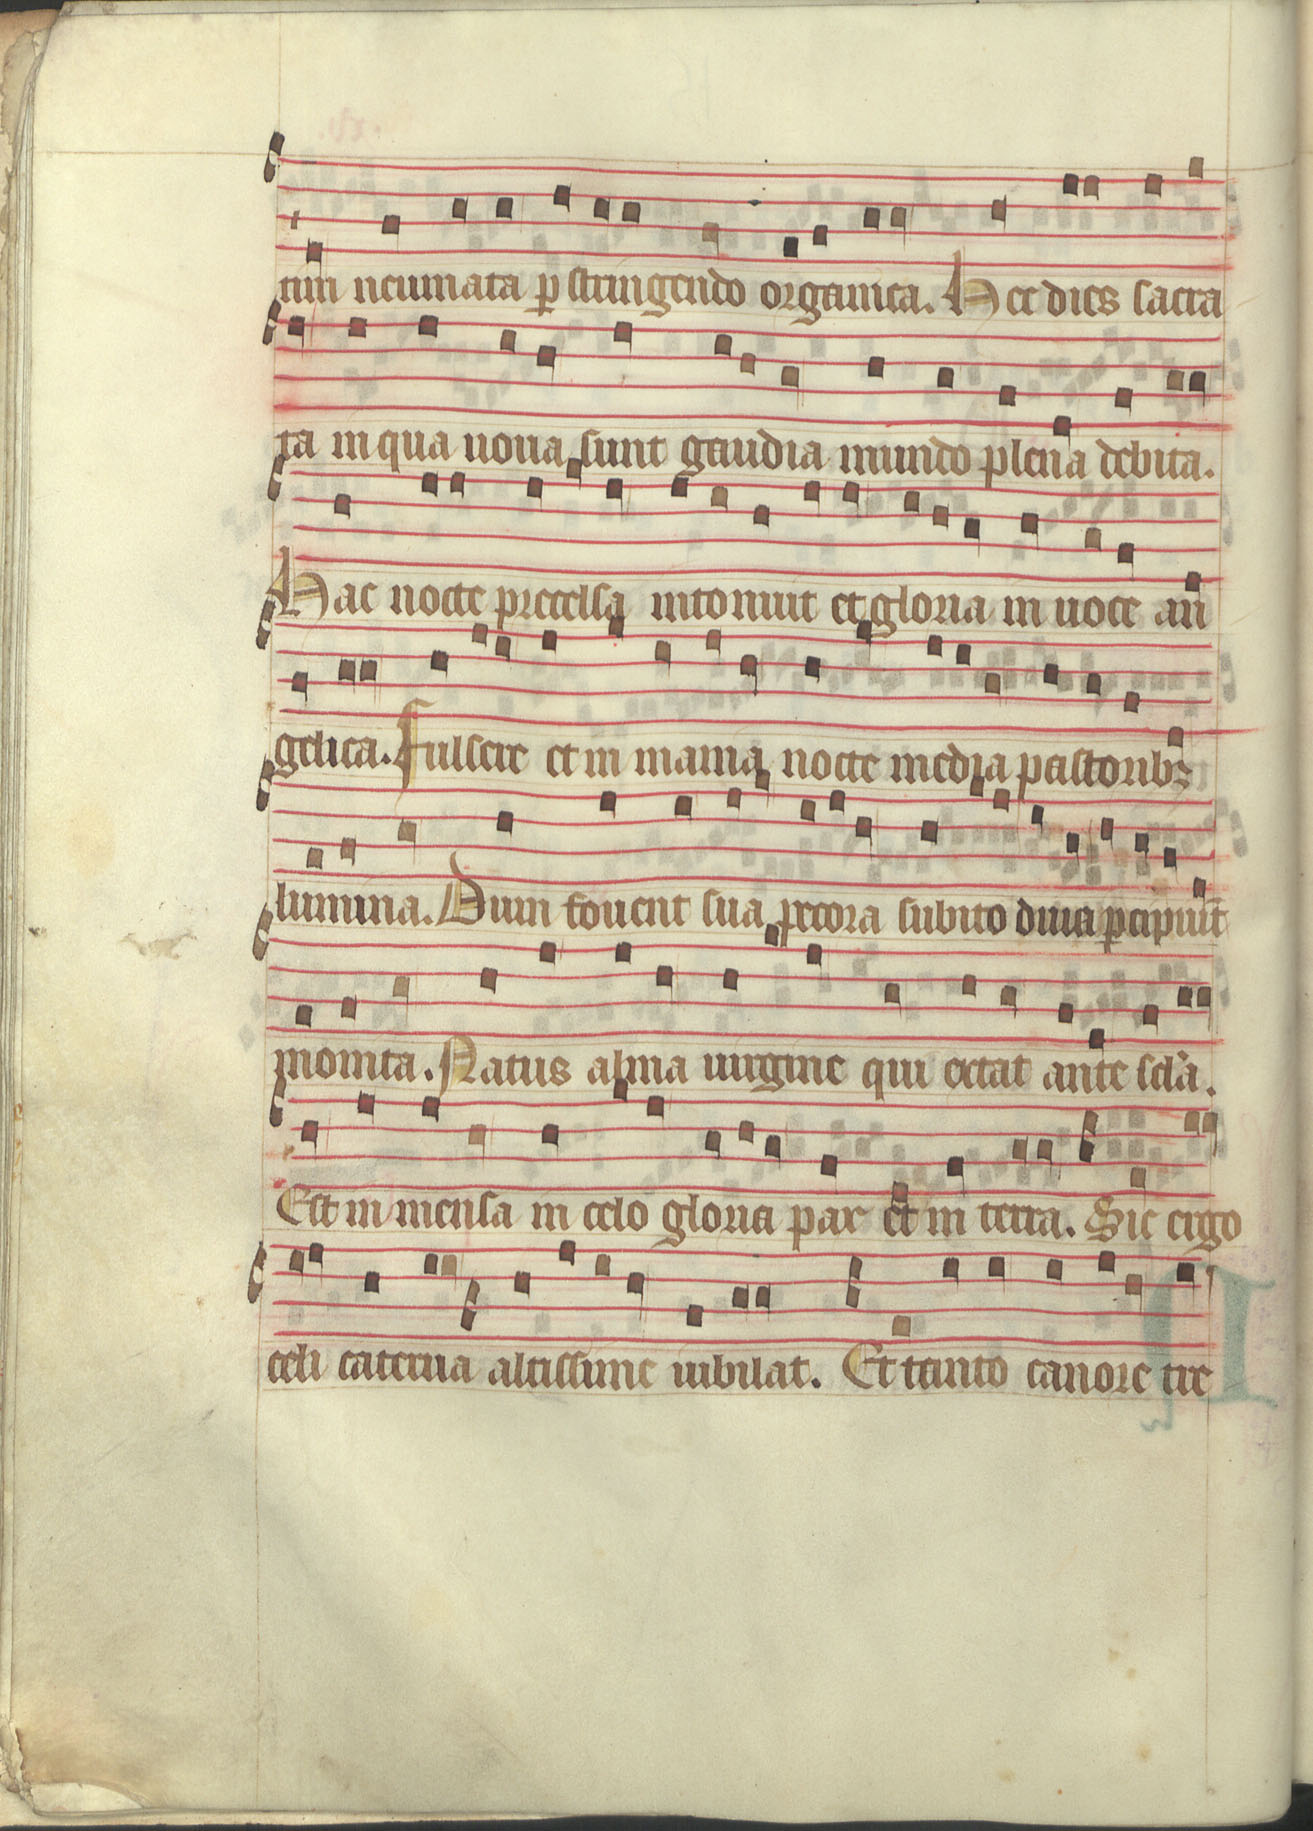 tim neumata p stringendo organica. Hec dies sacra
ta in qua noua sunt gaudia mundo plena debita.
Hac nocte precelsa intonuit et gloria in uoce an
gelica. Fulsere et in mania nocte media pastoribȝ
lumina. Dum fouent sua pecora subito diuia pcipiūt
monita. Natus alma uirgine qui extat ante sclā.
Est in mensa in celo gloria pax et in terra. Sic ergo
celi caterua altissime iubilat. Et tanto canore tre